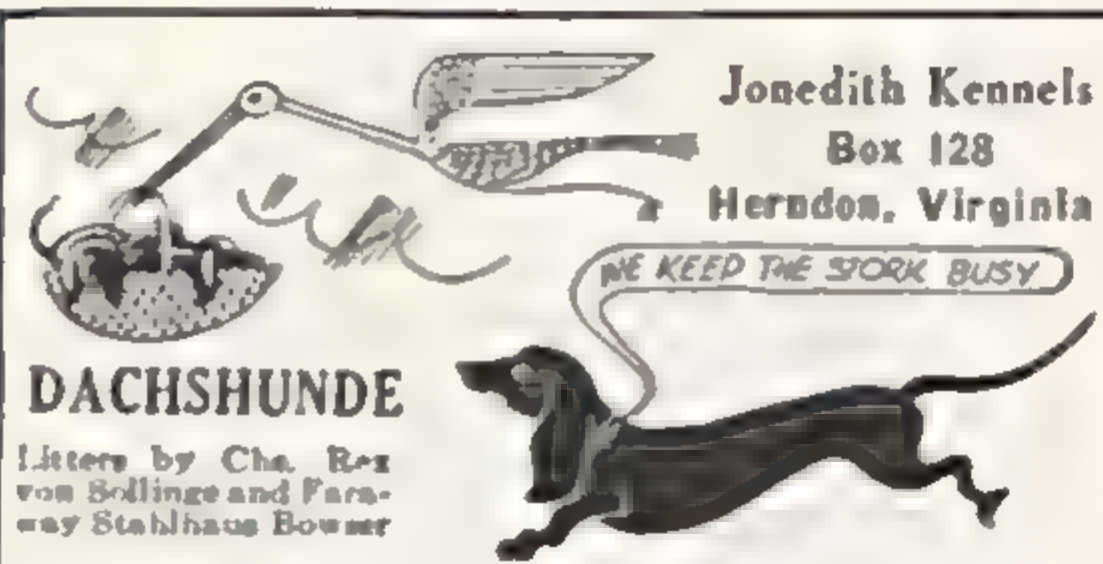 Jonedith Kennels
Box 128
Herndon, Virginia
WE KEEP THE STORK BUSY
DACHSHUNDE
Litters by Chs. Rex
von Sollinge and Fara-
way Stahlhaus